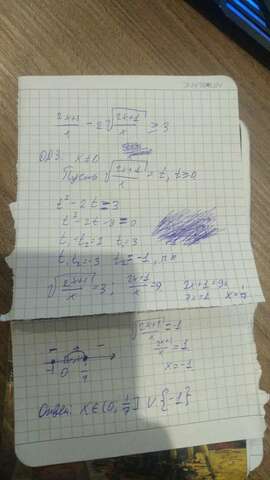 (2x+1)/x - 2√((2x+1)/x) ≥ 3
ОДЗ: x≠0
Пусть √((2x+1)/x) = t, t≥0
t² - 2t = 3
t² - 2t - 3 = 0
t₁ + t₂ = 2 t₁ = 3
t₁ · t₂ = -3 t₂ = -1
√((2x+1)/x) = 3; (2x+1)/x = 9 2x+1=9x
√((2x+1)/x) = 1
(2x+1)/x = 1
x=-1
-1 0 1/7
Ответ: x∈(0; 1/7] ∪ {-1}